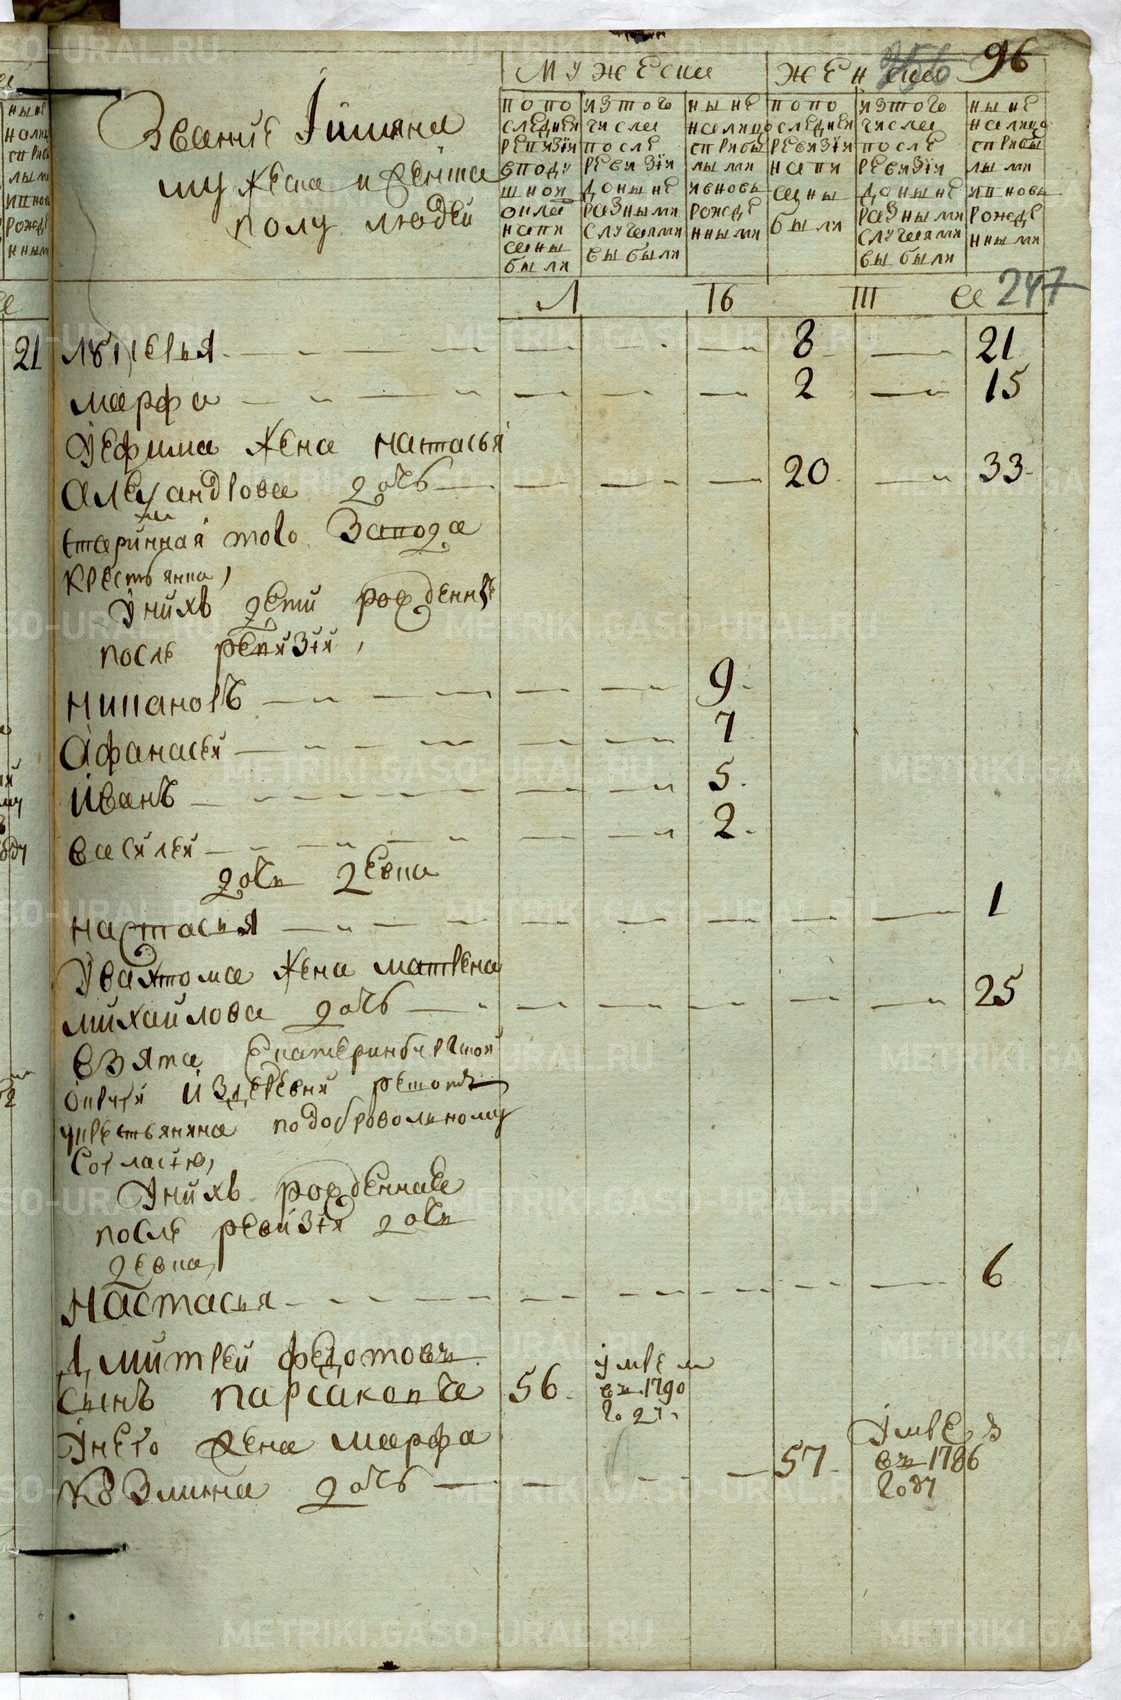 96
мужеска
женска
Звание I имяна
мужеска и женска
полу людей
попо
следней
ревизiи
вподу
шной
окла
напи
саны
были
изтого
числа
после
ревизiи
доныне
разными
случаями
выбыли
ныне
налицо
сприбы
лыми
ивновь
рожде
нными
попо
следней
ревизiи
напи
саны
были
изтого
числа
после
ревизiи
доныне
разными
случаями
выбыли
ныне
налицо
сприбы
лыми
ивновь
рожде
нными
247
21 лукерья 8 21
марфа 2 15
Уефима жена настасья
александрова дочь 20 33
старинная того завода
крестьянка,
Уних дети рожденные
после ревизiи,
никаноръ 9
Афанасей 7
Иванъ 5
василей 2
дочь девка
настасья 1
Увахтома жена матрена
михайлова дочь 25
взята екатеринбургской
округи издеревни
крестьянина подобровольному
согласiю,
Уних рожденная
после ревизiи дочь
девка,
Настасья 6
Дмитрей федотовъ
сынъ 56 умре
въ 1790
году
Унего жена марфа
козмина дочь 57 умре
въ 1786
году
METRIKI.GASO-URAL.RU